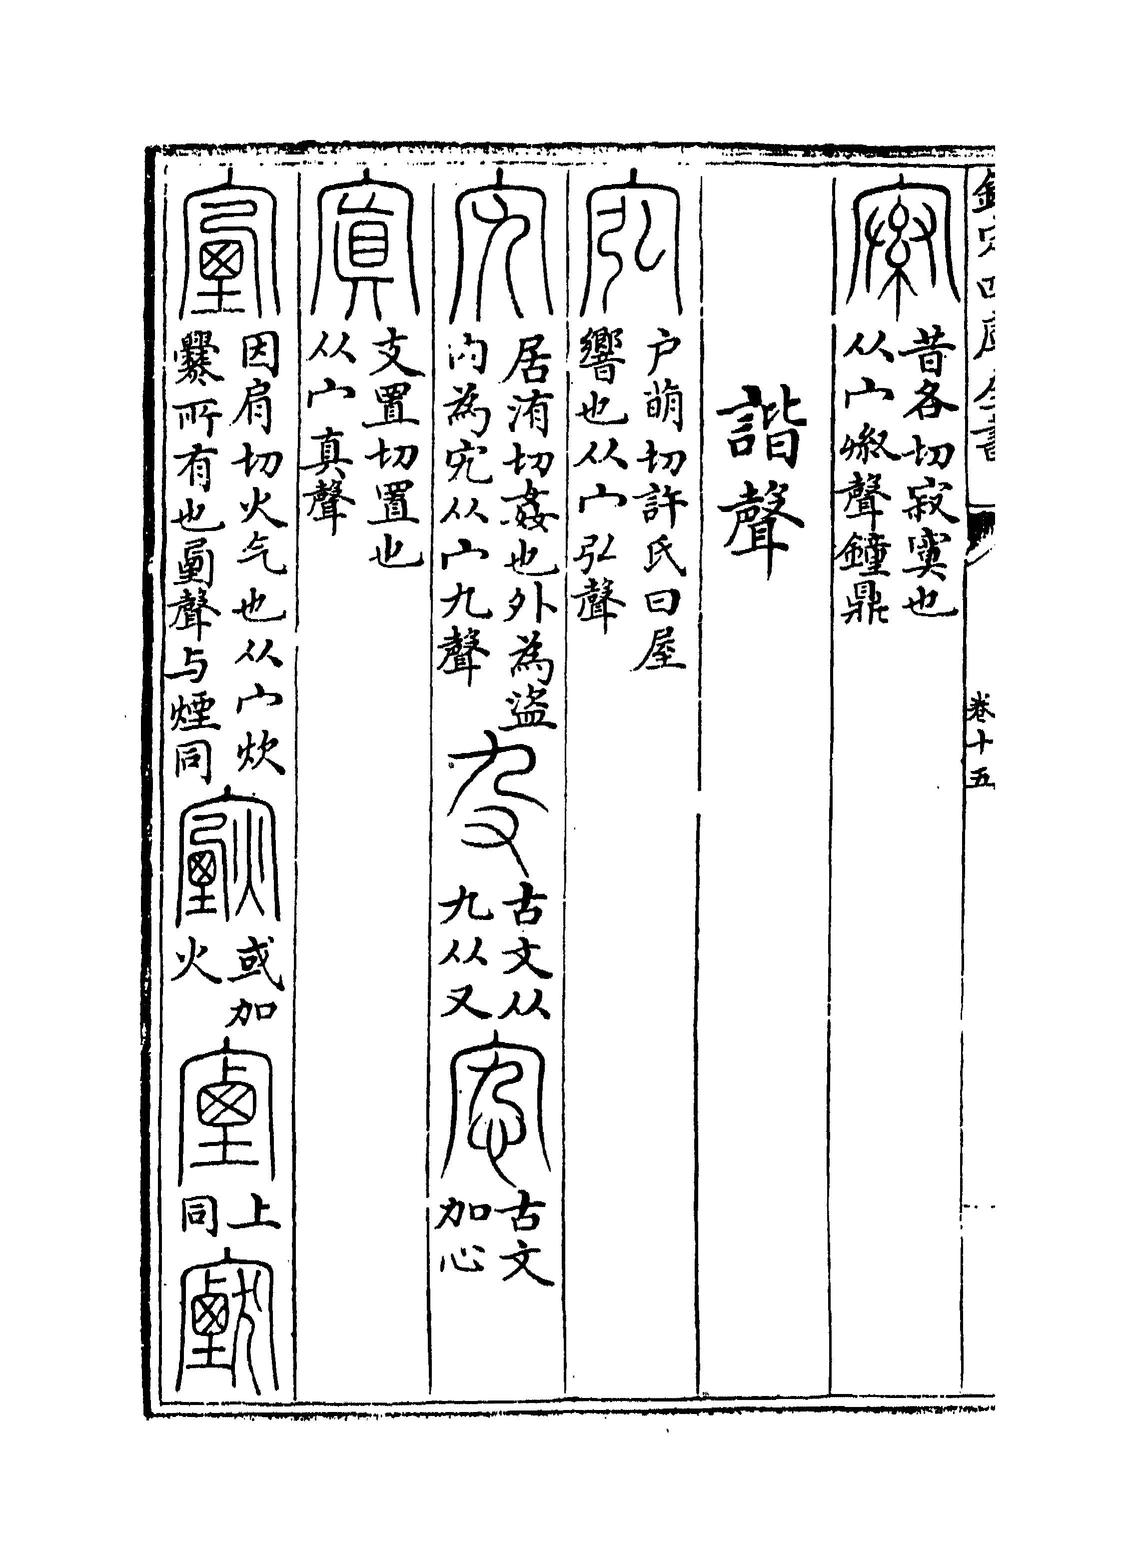 欽定四庫全書
卷十五
昔各切寂寞也
从宀聲鐘鼎
諧聲
宖
户萌切許氏曰屋
響也从宀弘聲
宄
居洧切姦也外為盜
内為宄从宀九聲
古文从
九从又
古文
加心
寘
支置切置也
从宀真聲
因肩切火气也从宀炊
爨所有也聲与煙同
或加
火
上
同